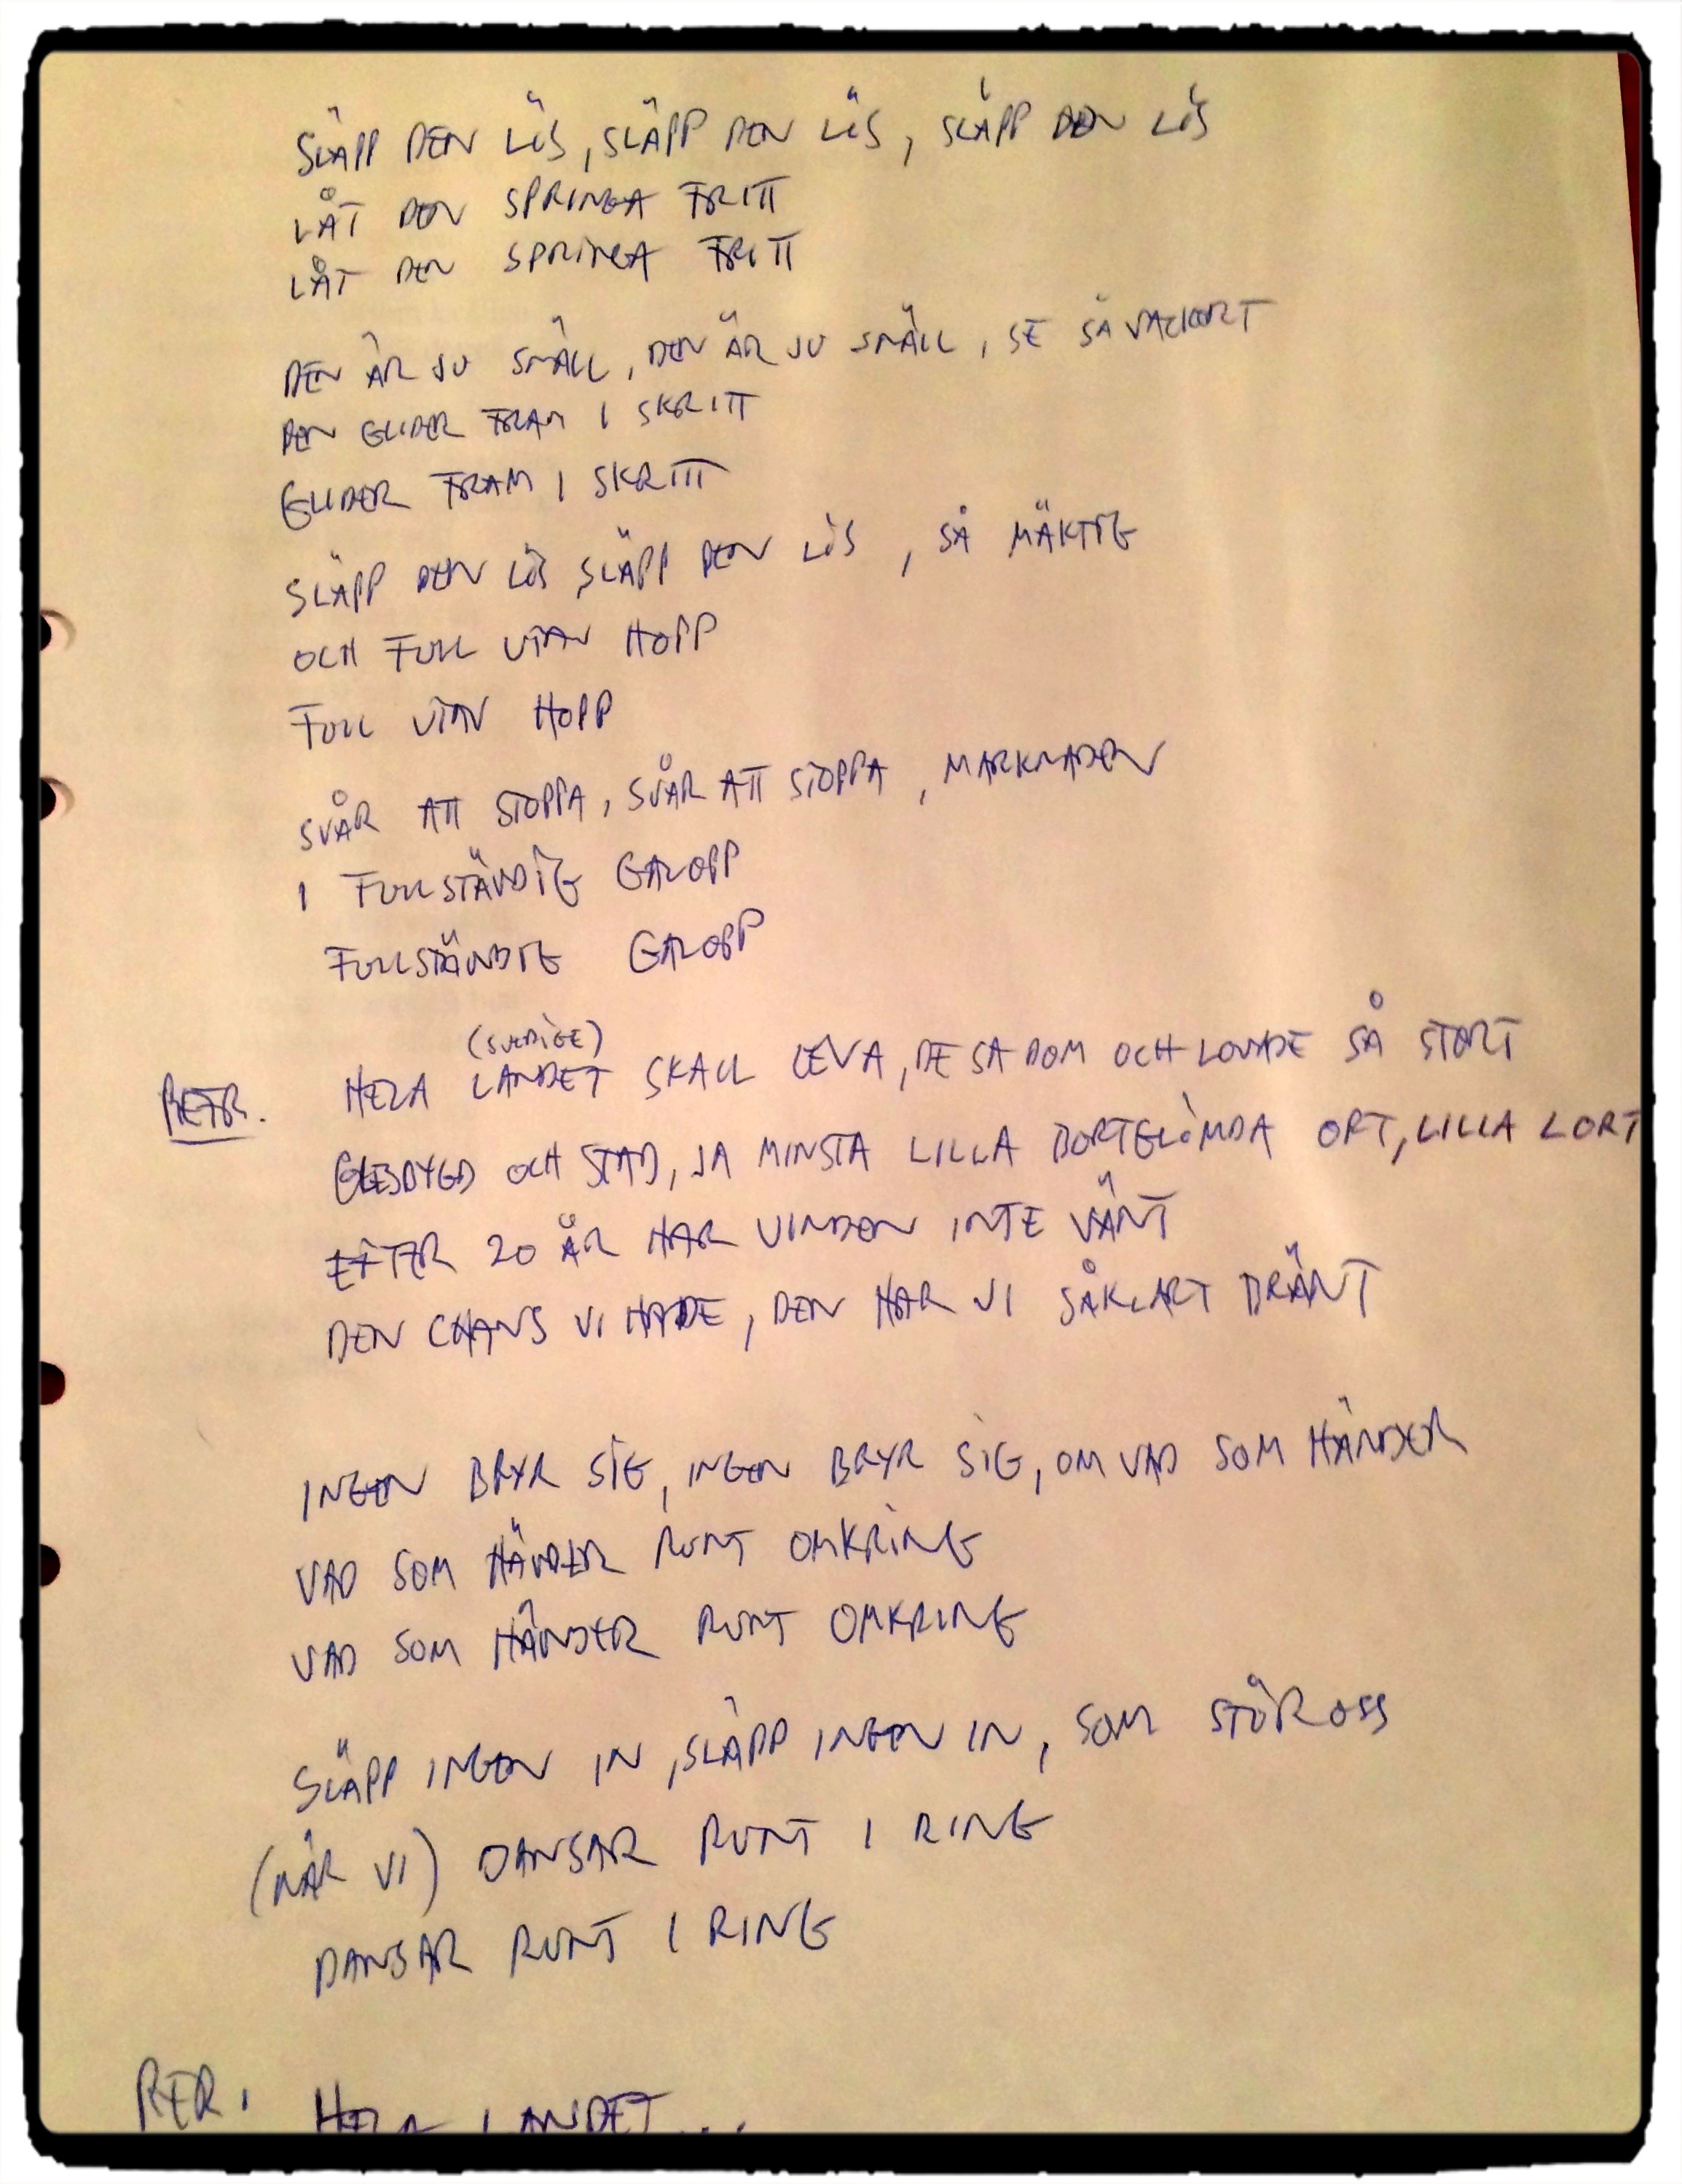 SLÄPP DEN LÖS, SLÄPP DEN LÖS, SLÄPP DEN LÖS
LÅT DEN SPRINGA FRITT
LÅT DEN SPRINGA FRITT
DEN ÄR JU SNÄLL, DEN ÄR JU SNÄLL, SE SÅ VACKERT
DEN GLIDER FRAM I SKRITT
GLIDER FRAM I SKRITT
SLÄPP DEN LÖS, SLÄPP DEN LÖS, SÅ MÄKTIG
OCH FULL UTAV HOPP
FULL UTAV HOPP
SVÅR ATT STOPPA, SVÅR ATT STOPPA, MARKNADEN
I FULLSTÄNDIG GALOPP
FULLSTÄNDIG GALOPP
(SVERIGE)
REFR. HELA LANDET SKALL LEVA, DE SA DOM OCH LOVADE SÅ STORT
GLESBYGD OCH STAD, JA MINSTA LILLA BORTGLÖMDA ORT, LILLA LORT
EFTER 20 ÅR HAR VINDEN INTE VÄNT
DEN CHANS VI HADE, DEN HAR VI SÅKLART BRÄNT
INGEN BRYR SIG, INGEN BRYR SIG, OM VAD SOM HÄNDER
VAD SOM HÄNDER RUNT OMKRING
VAD SOM HÄNDER RUNT OMKRING
SLÄPP INGEN IN, SLÄPP INGEN IN, SOM STÖR OSS
(NÄR VI) DANSAR RUNT I RING
DANSAR RUNT I RING
REFR. HELA LANDET...